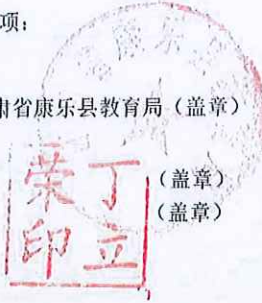 项：
肃省康乐县教育局（盖章）
（盖章）
（盖章）
丁立
荣印